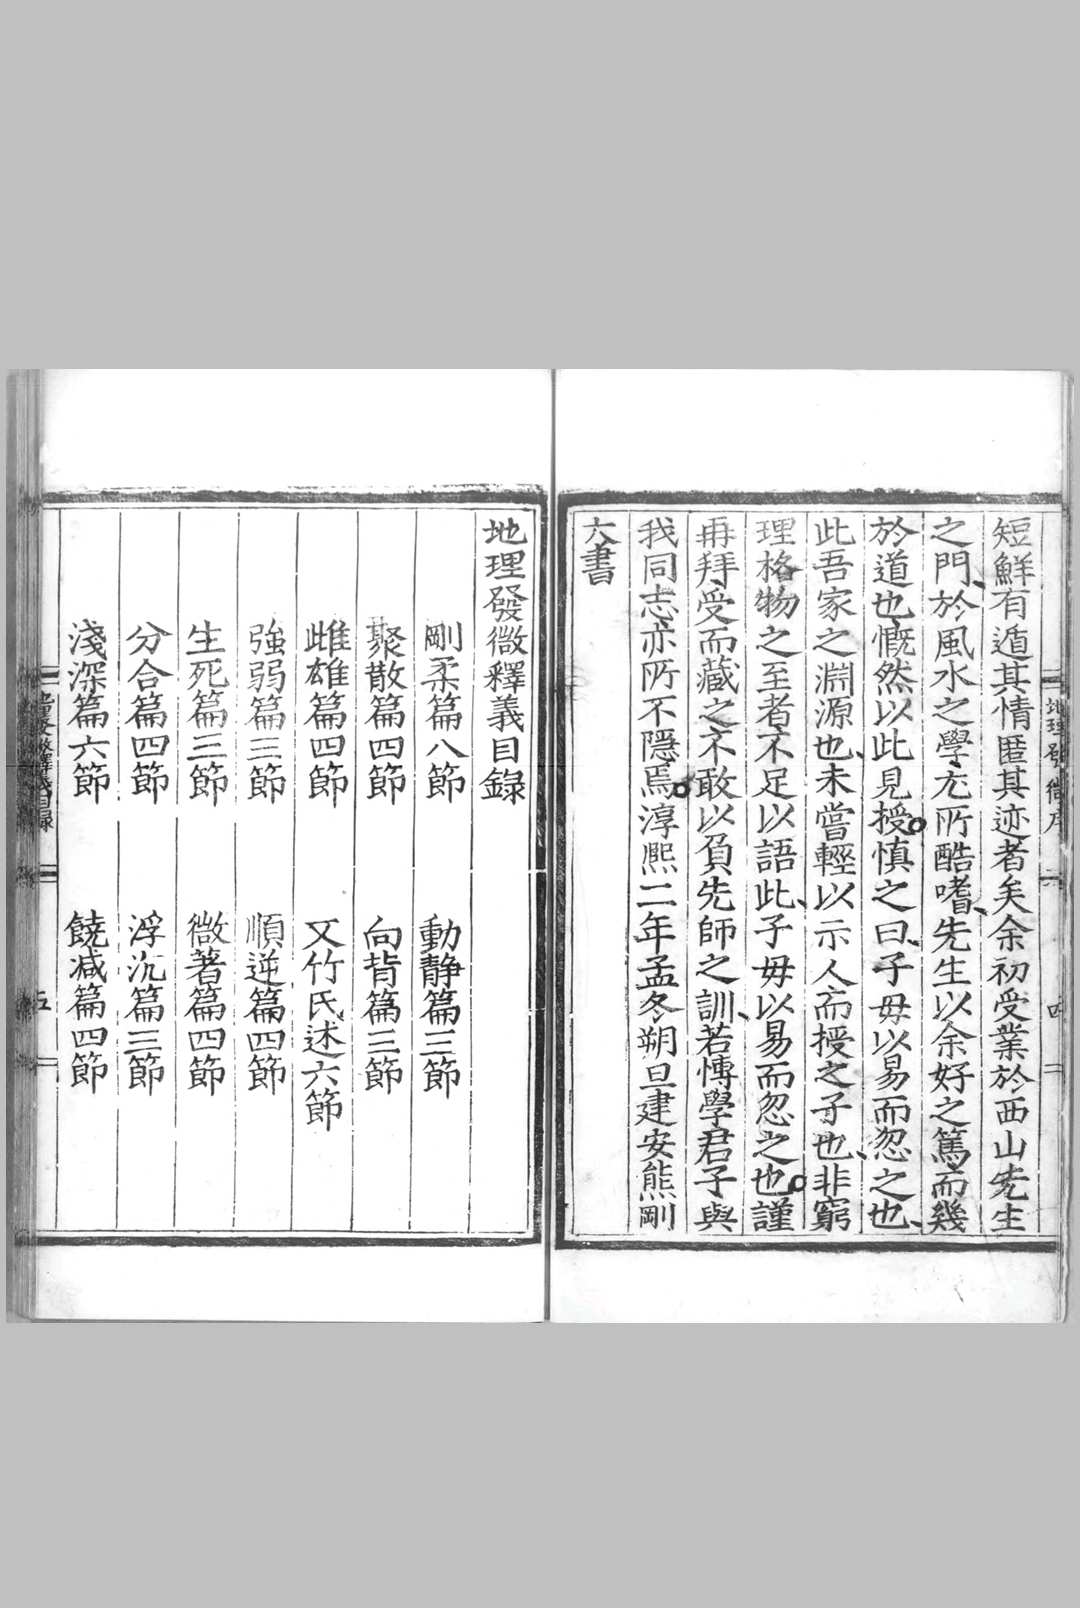 短鮮有遁其情匿其迹者矣余初受業於西山先生
之門於風水之學尤所酷嗜先生以余好之篤而幾
於道也慨然以此見授慎之曰子毋以易而忽之也
此吾家之淵源也未嘗輕以示人而授之子也非窮
理格物之至者不足以語此子毋以易而忽之也謹
再拜受而藏之不敢以負先師之訓若博學君子與
我同志亦所不隱焉淳熈二年孟冬朔旦建安熊剛
大書
地理發微序
四
地理發微釋義目錄
剛柔篇八節 動靜篇三節
聚散篇四節 向背篇三節
雌雄篇四節 又竹氏述六節
強弱篇三節 順逆篇四節
生死篇三節 微著篇四節
分合篇四節 浮沉篇三節
淺深篇六節 饒减篇四節
五